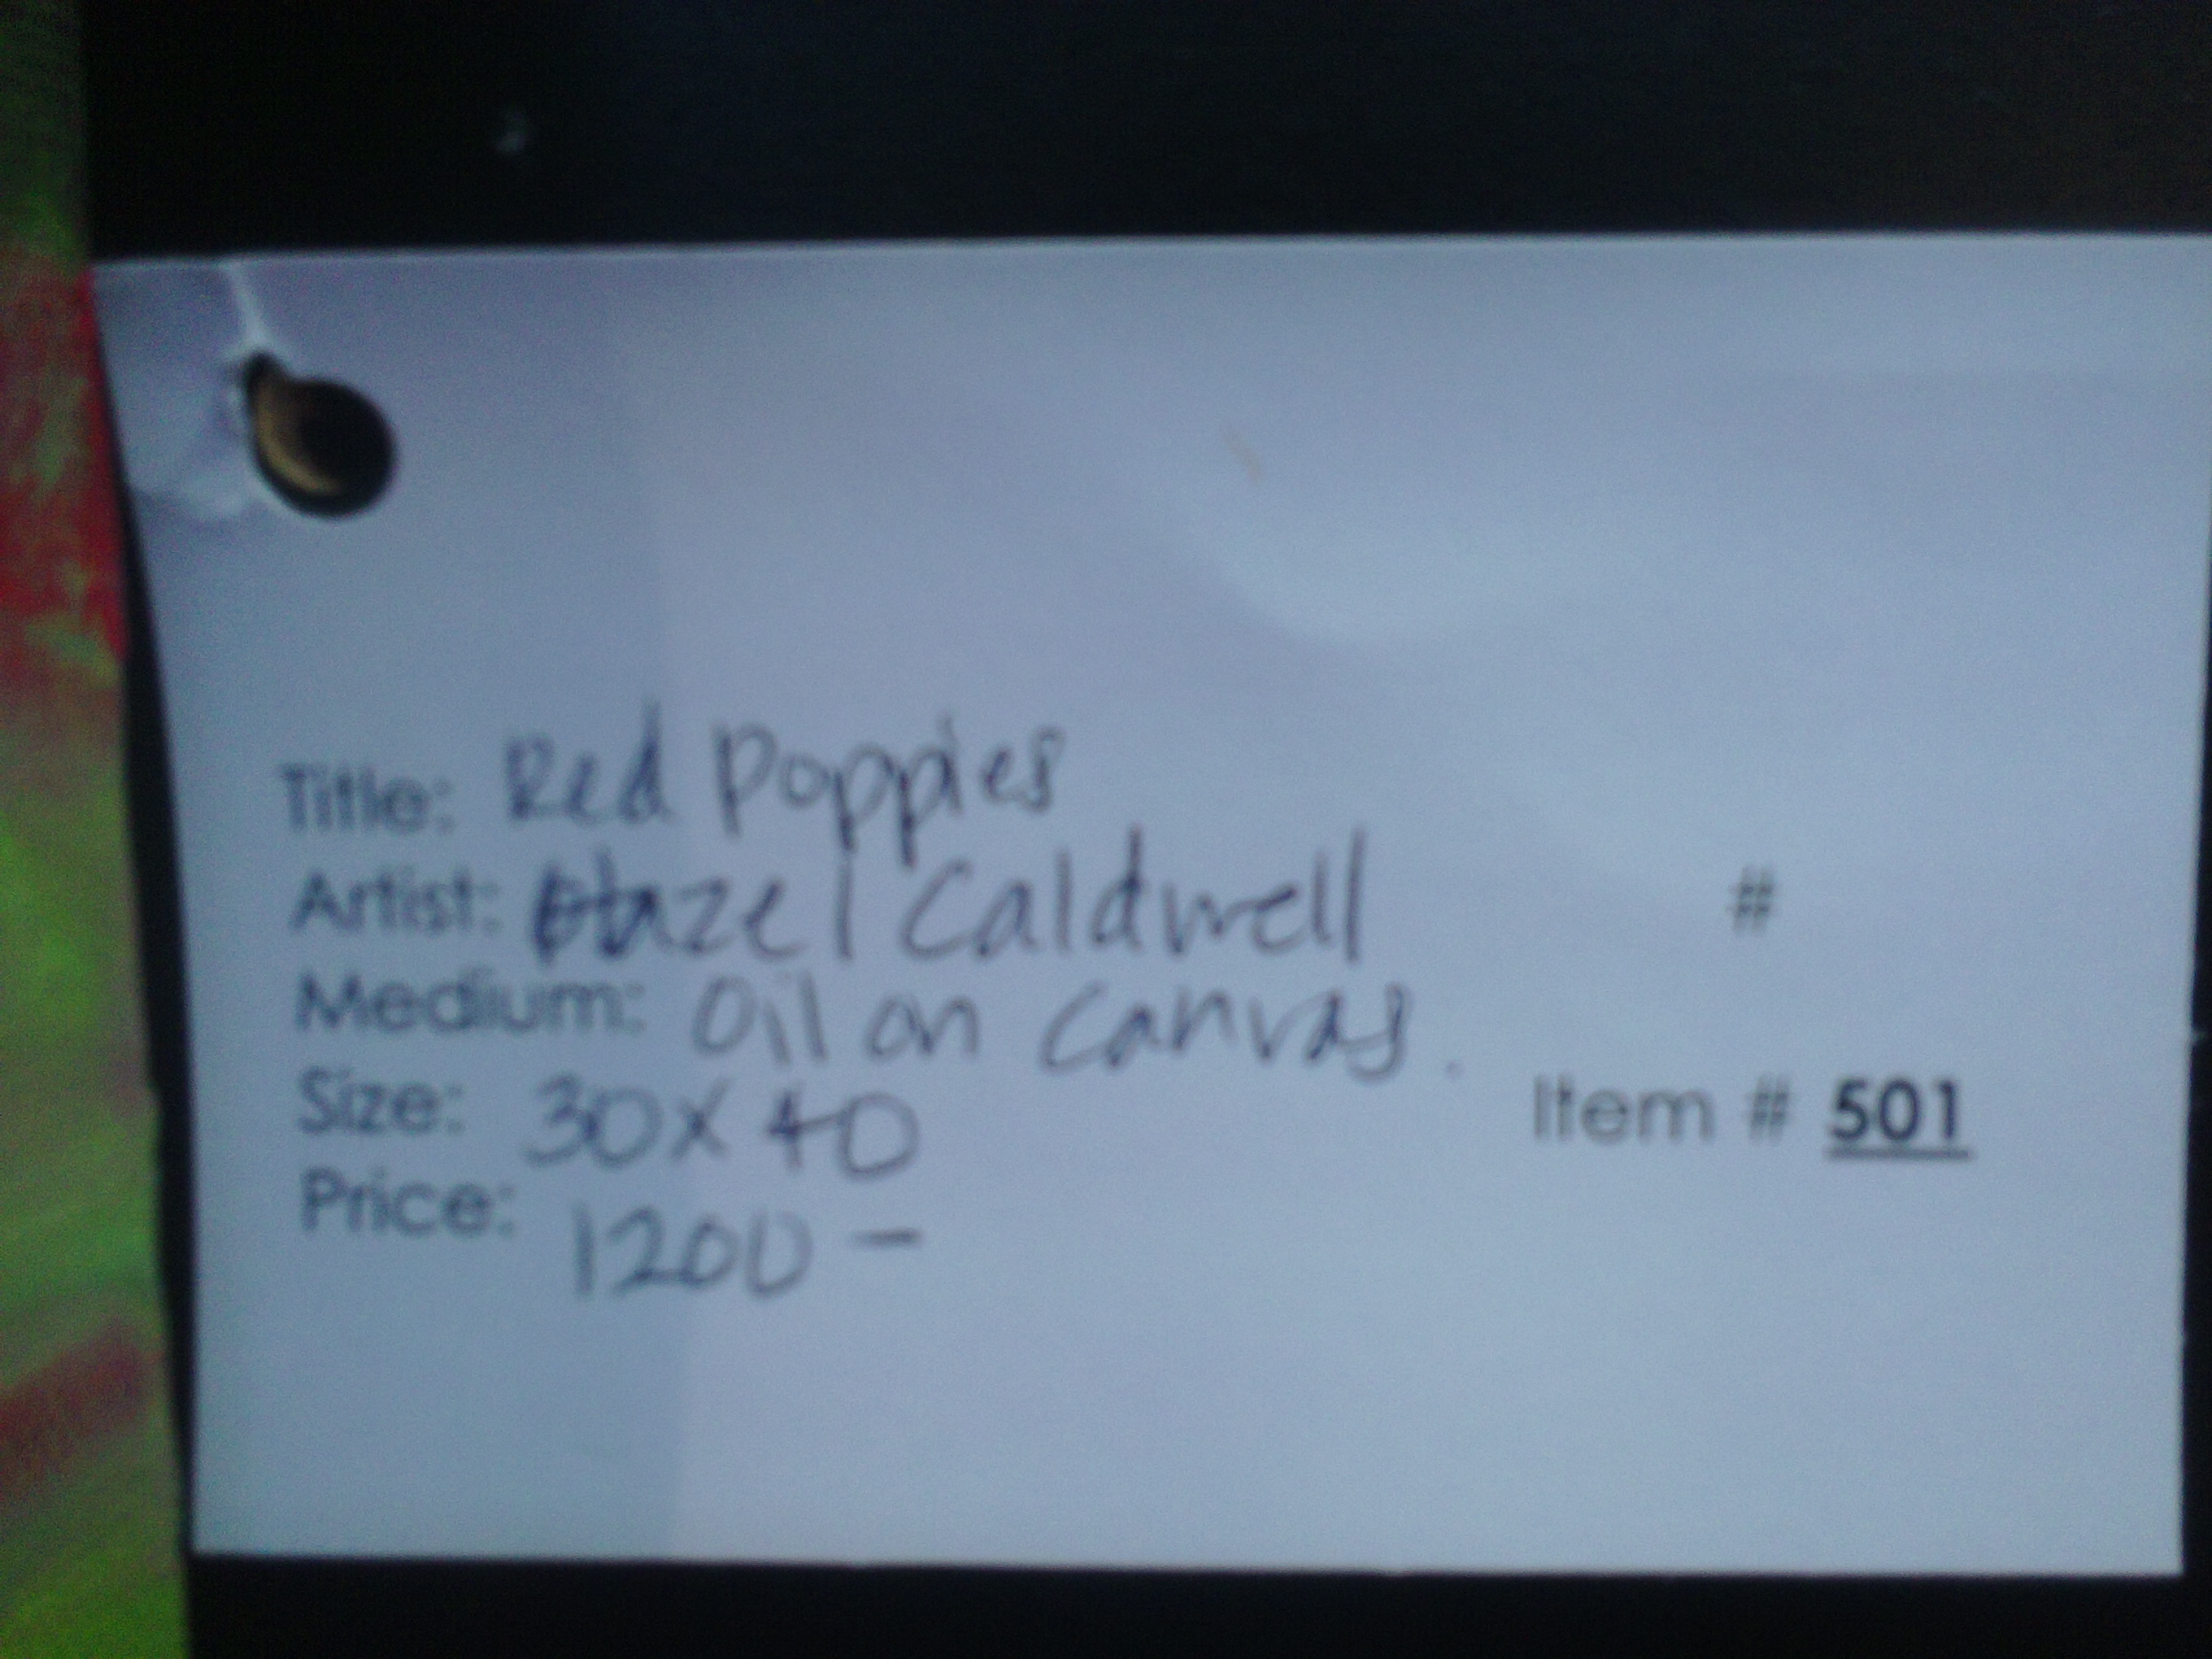 Title: Red Poppies
Artist: Hazel Caldwell
#
Medium: Oil on Canvas.
Size: 30x40
Item # 501
Price: 1200 -